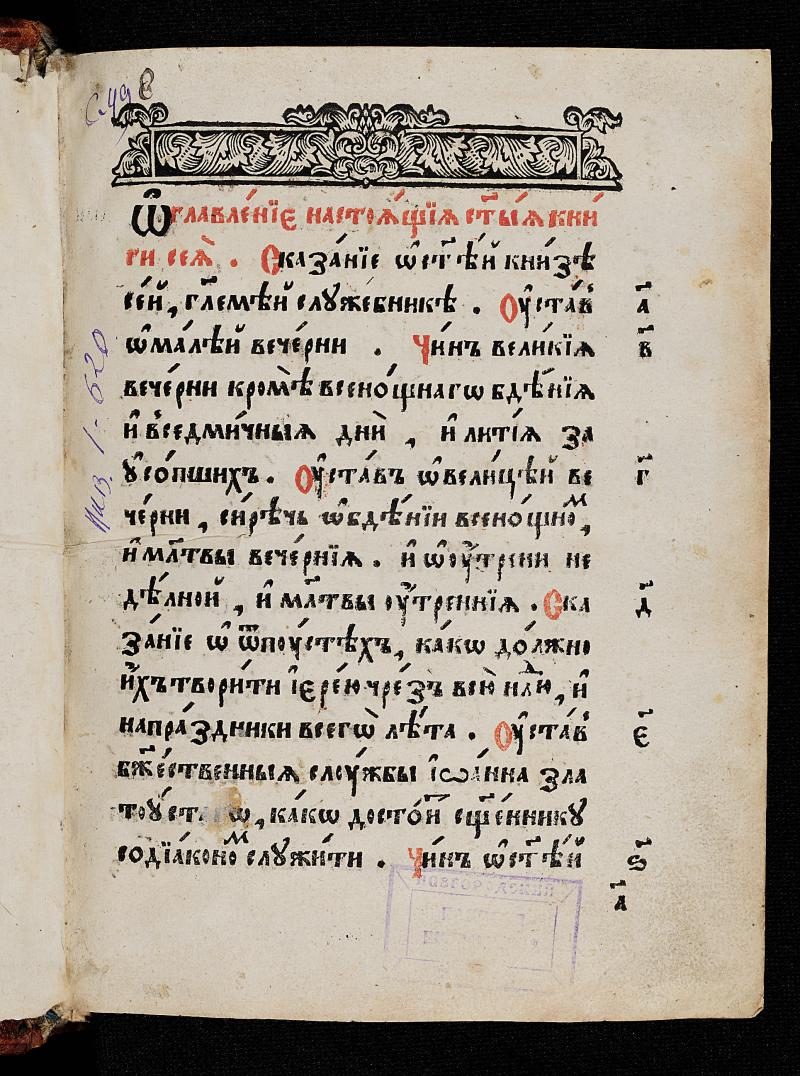 С.49 8
Ѡ҆главле́нїе настоѧ́щїѧ ст҃ы́ѧ кни́
ги сеѧ̀ . Сказа́нїе ѡ҆ ст҃ѣ́й кни́зѣ
се́й, гл҃емѣ́й слꙋже́бникѣ . Оу҆ста́въ а҃
ѡ҆ ма́лѣй вече́рни . Чи́нъ вели́кїѧ в҃
вече́рни кромѣ̀ всено́щнагѡ бдѣ́нїѧ
и҆ в̾седми́чныѧ днѝ , и҆ литі́ѧ за
ᲂу҆со́пшихъ . Оу҆ста́въ ѡ҆ вели́цѣй ве г҃
че́рни , си́рѣчь ѡ҆ бдѣ́нїи всено́щном ,
и҆ мл҃твы вече́рнїѧ . и҆ ѡ҆ оу҆́трени не
дѣ́лной , и҆ мл҃твы оу҆́треннїѧ . Ска д҃
за́нїе ѡ҆ ѿпоу́стѣхъ , ка́кѡ до́лжно
и҆́хъ твори́ти і҆ере́ю чре́зъ всю̀ нлⷣю , и҆
на пра́здники всегѡ̀ лѣ́та . Оу҆ста́въ є҃
бж҃е́ственныѧ слоу́жбы і҆ѡа́нна зла
тоу́стагѡ , ка́кѡ досто́итъ сщ҃е́нникꙋ
со дїа́кономъ слꙋжи́ти . Чи́нъ ѡ҆ ст҃ѣ́й ѕ҃
а҃
инв. 1-620
НОВГОРОДСКИЙ